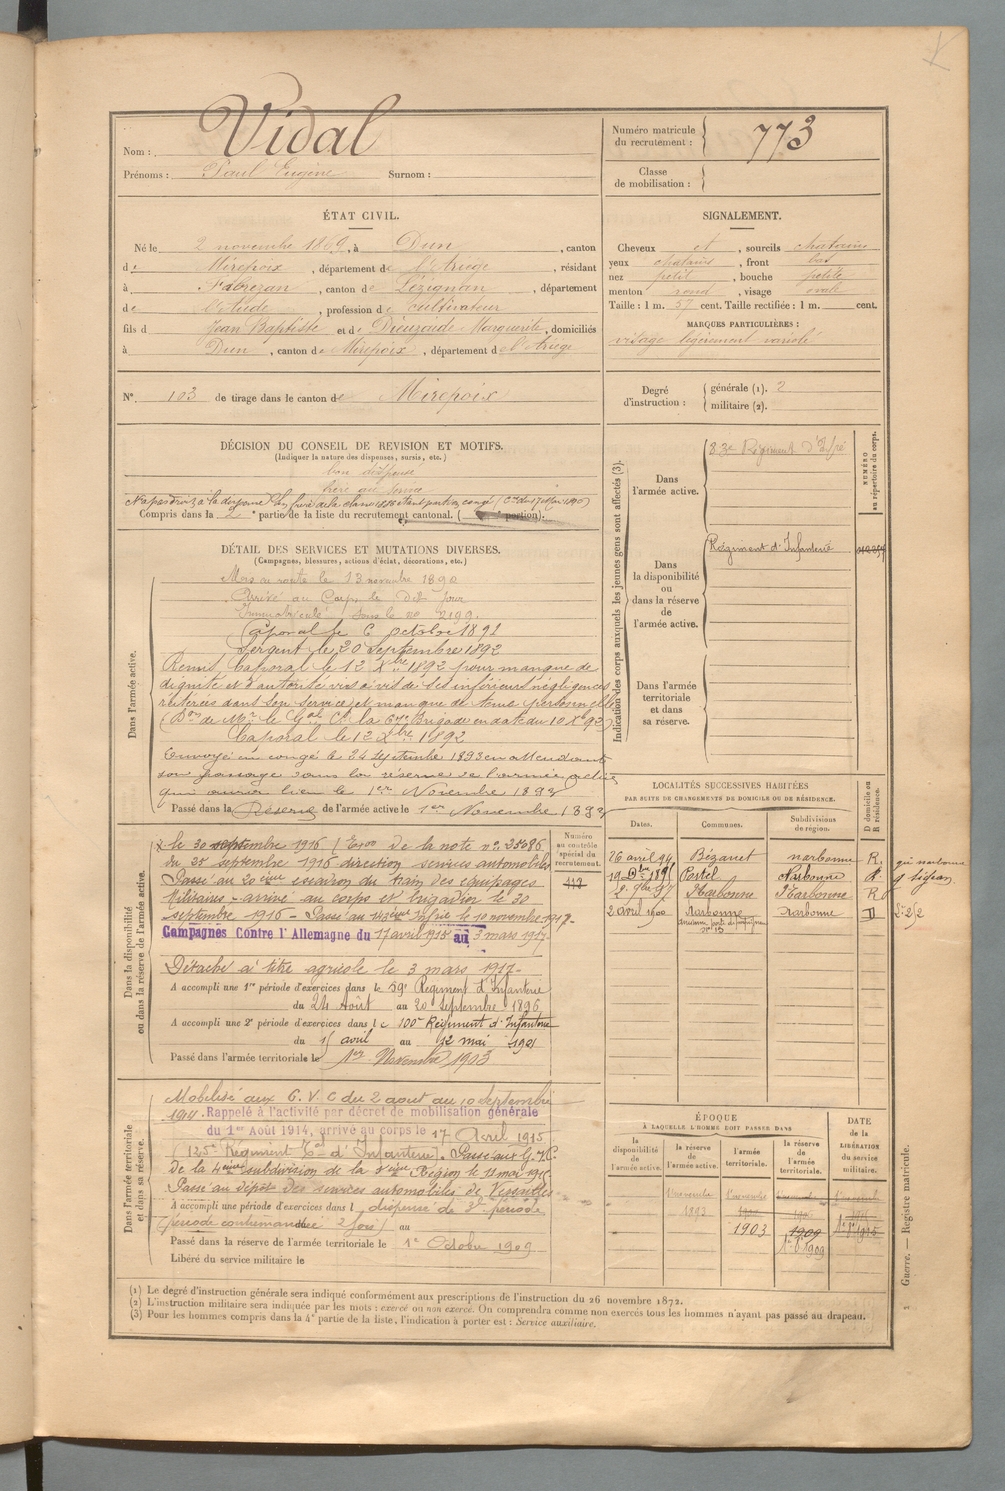 Nom : Vidal
Prénoms : Paul Eugène Surnom :
Numéro matricule du recrutement : 773
Classe de mobilisation :
ÉTAT CIVIL.
Né le 2 novembre 1869, à Dun, canton
de Mirepoix, département de l'Ariège, résidant
à Fabrezan, canton de Lézignan, département
de l'Aude, profession de cultivateur
fils d Jean Baptiste et de Dieuzaide Marguerite, domiciliés
à Dun, canton de Mirepoix, département de l'Ariège
SIGNALEMENT.
Cheveux et, sourcils chatains
yeux chatains, front bas
nez petit, bouche petite
menton rond, visage ovale
Taille : 1 m. 57 cent. Taille rectifiée : 1 m. cent.
MARQUES PARTICULIÈRES :
visage légèrement variolé
N° 103 de tirage dans le canton de Mirepoix
Degré d'instruction : générale (1). 2
militaire (2).
DÉCISION DU CONSEIL DE REVISION ET MOTIFS.
(Indiquer la nature des dispenses, sursis, etc.)
bon dispensé
frère au service
Compris dans la 2e partie de la liste du recrutement cantonal. ( portion).
DÉTAIL DES SERVICES ET MUTATIONS DIVERSES.
(Campagnes, blessures, actions d'éclat, décorations, etc.)
Dans l'armée active.
Mis en route le 13 novembre 1890
Arrivé au Corps le Dit jour
Immatriculé sous le no 2199.
Caporal le 6 octobre 1892
Sergent le 20 septembre 1892
Remis Caporal le 12 Xbre 1892 pour manque de
dignité et d'autorité vis à vis de ses inférieurs négligences
réitérées dans son service et manque de tenue personnelle
Caporal le 12 Xbre 1892
Envoyé en congé le 24 septembre 1893 en attendant
son passage dans la réserve de l'armée active
qui aura lieu le 1er Novembre 1893
Passé dans la Réserve de l'armée active le 1er Novembre 1893
Indication des corps auxquels les jeunes gens sont affectés (3).
Dans l'armée active.
83e Régiment d'Infie
NUMÉRO au répertoire du corps.
Dans la disponibilité ou dans la réserve de l'armée active.
Régiment d'Infanterie
Dans l'armée territoriale et dans sa réserve.
LOCALITÉS SUCCESSIVES HABITÉES
PAR SUITE DE CHANGEMENTS DE DOMICILE OU DE RÉSIDENCE.
Dates. Communes. Subdivisions de région. D domicile ou R résidence.
26 avril 94 Bézanet narbonne R. gie narbonne
Portel Narbonne R. g Sigean
Narbonne Narbonne R
2 avril 1900 Narbonne Narbonne D
Dans la disponibilité ou dans la réserve de l'armée active.
Numéro au contrôle spécial du recrutement.
le 30 septembre 1916 (Exon de la note no 25086
du 25 septembre 1916 direction services automobiles
Passé au 20ème escadron du train des équipages
Militaires – arrivé au corps et brigadier le 30
septembre 1916 – Passé au 143ème Infrie le 10 novembre 1917 –
Campagnes Contre l'Allemagne du 17 avril 1915 au 3 mars 1917
Détaché à titre agricole le 3 mars 1917 –
A accompli une 1re période d'exercices dans le 59e Régiment d'Infanterie
du 24 Août au 20 septembre 1896
A accompli une 2e période d'exercices dans le 100e Régiment d'Infanterie
du 15 avril au 12 mai 1901
Passé dans l'armée territoriale le 1er Novembre 1903
Dans l'armée territoriale et dans sa réserve.
Mobilisé aux G. V. C du 2 aout au 10 septembre
1914. Rappelé à l'activité par décret de mobilisation générale
du 1er Août 1914, arrivé au corps le 17 Avril 1915
(125e Régiment Tal d'Infanterie). Passé aux G.V.C.
De la 4ème subdivision de la Région le 11 mai 1915
Passé au dépôt Des services automobiles de Versailles
A accompli une période d'exercices dans l dispensé de 3e période
(période contremandée 2 fois) au
Passé dans la réserve de l'armée territoriale le 1er Octobre 1909
Libéré du service militaire le
ÉPOQUE
À LAQUELLE L'HOMME DOIT PASSER DANS
la disponibilité de l'armée active.
la réserve de l'armée active.
l'armée territoriale.
la réserve de l'armée territoriale.
DATE de la LIBÉRATION du service militaire.
1er novembre 1893
1er novembre 1903
1909
1er 8bre 1909
(1) Le degré d'instruction générale sera indiqué conformément aux prescriptions de l'instruction du 26 novembre 1872.
(2) L'instruction militaire sera indiquée par les mots : exercé ou non exercé. On comprendra comme non exercés tous les hommes n'ayant pas passé au drapeau.
(3) Pour les hommes compris dans la 4e partie de la liste, l'indication à porter est : Service auxiliaire.
Guerre. — Registre matricule.